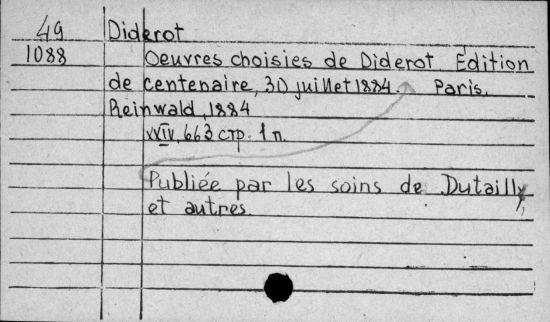 49 Diderot
1088 Oeuvres choisies de Diderot Edition
de centenaire, 30 juillet 1884. Paris,
Reinwald, 1884
XXIV, 663 стр. 1 л.
Publiée par les soins de Dutailly,
et autres.